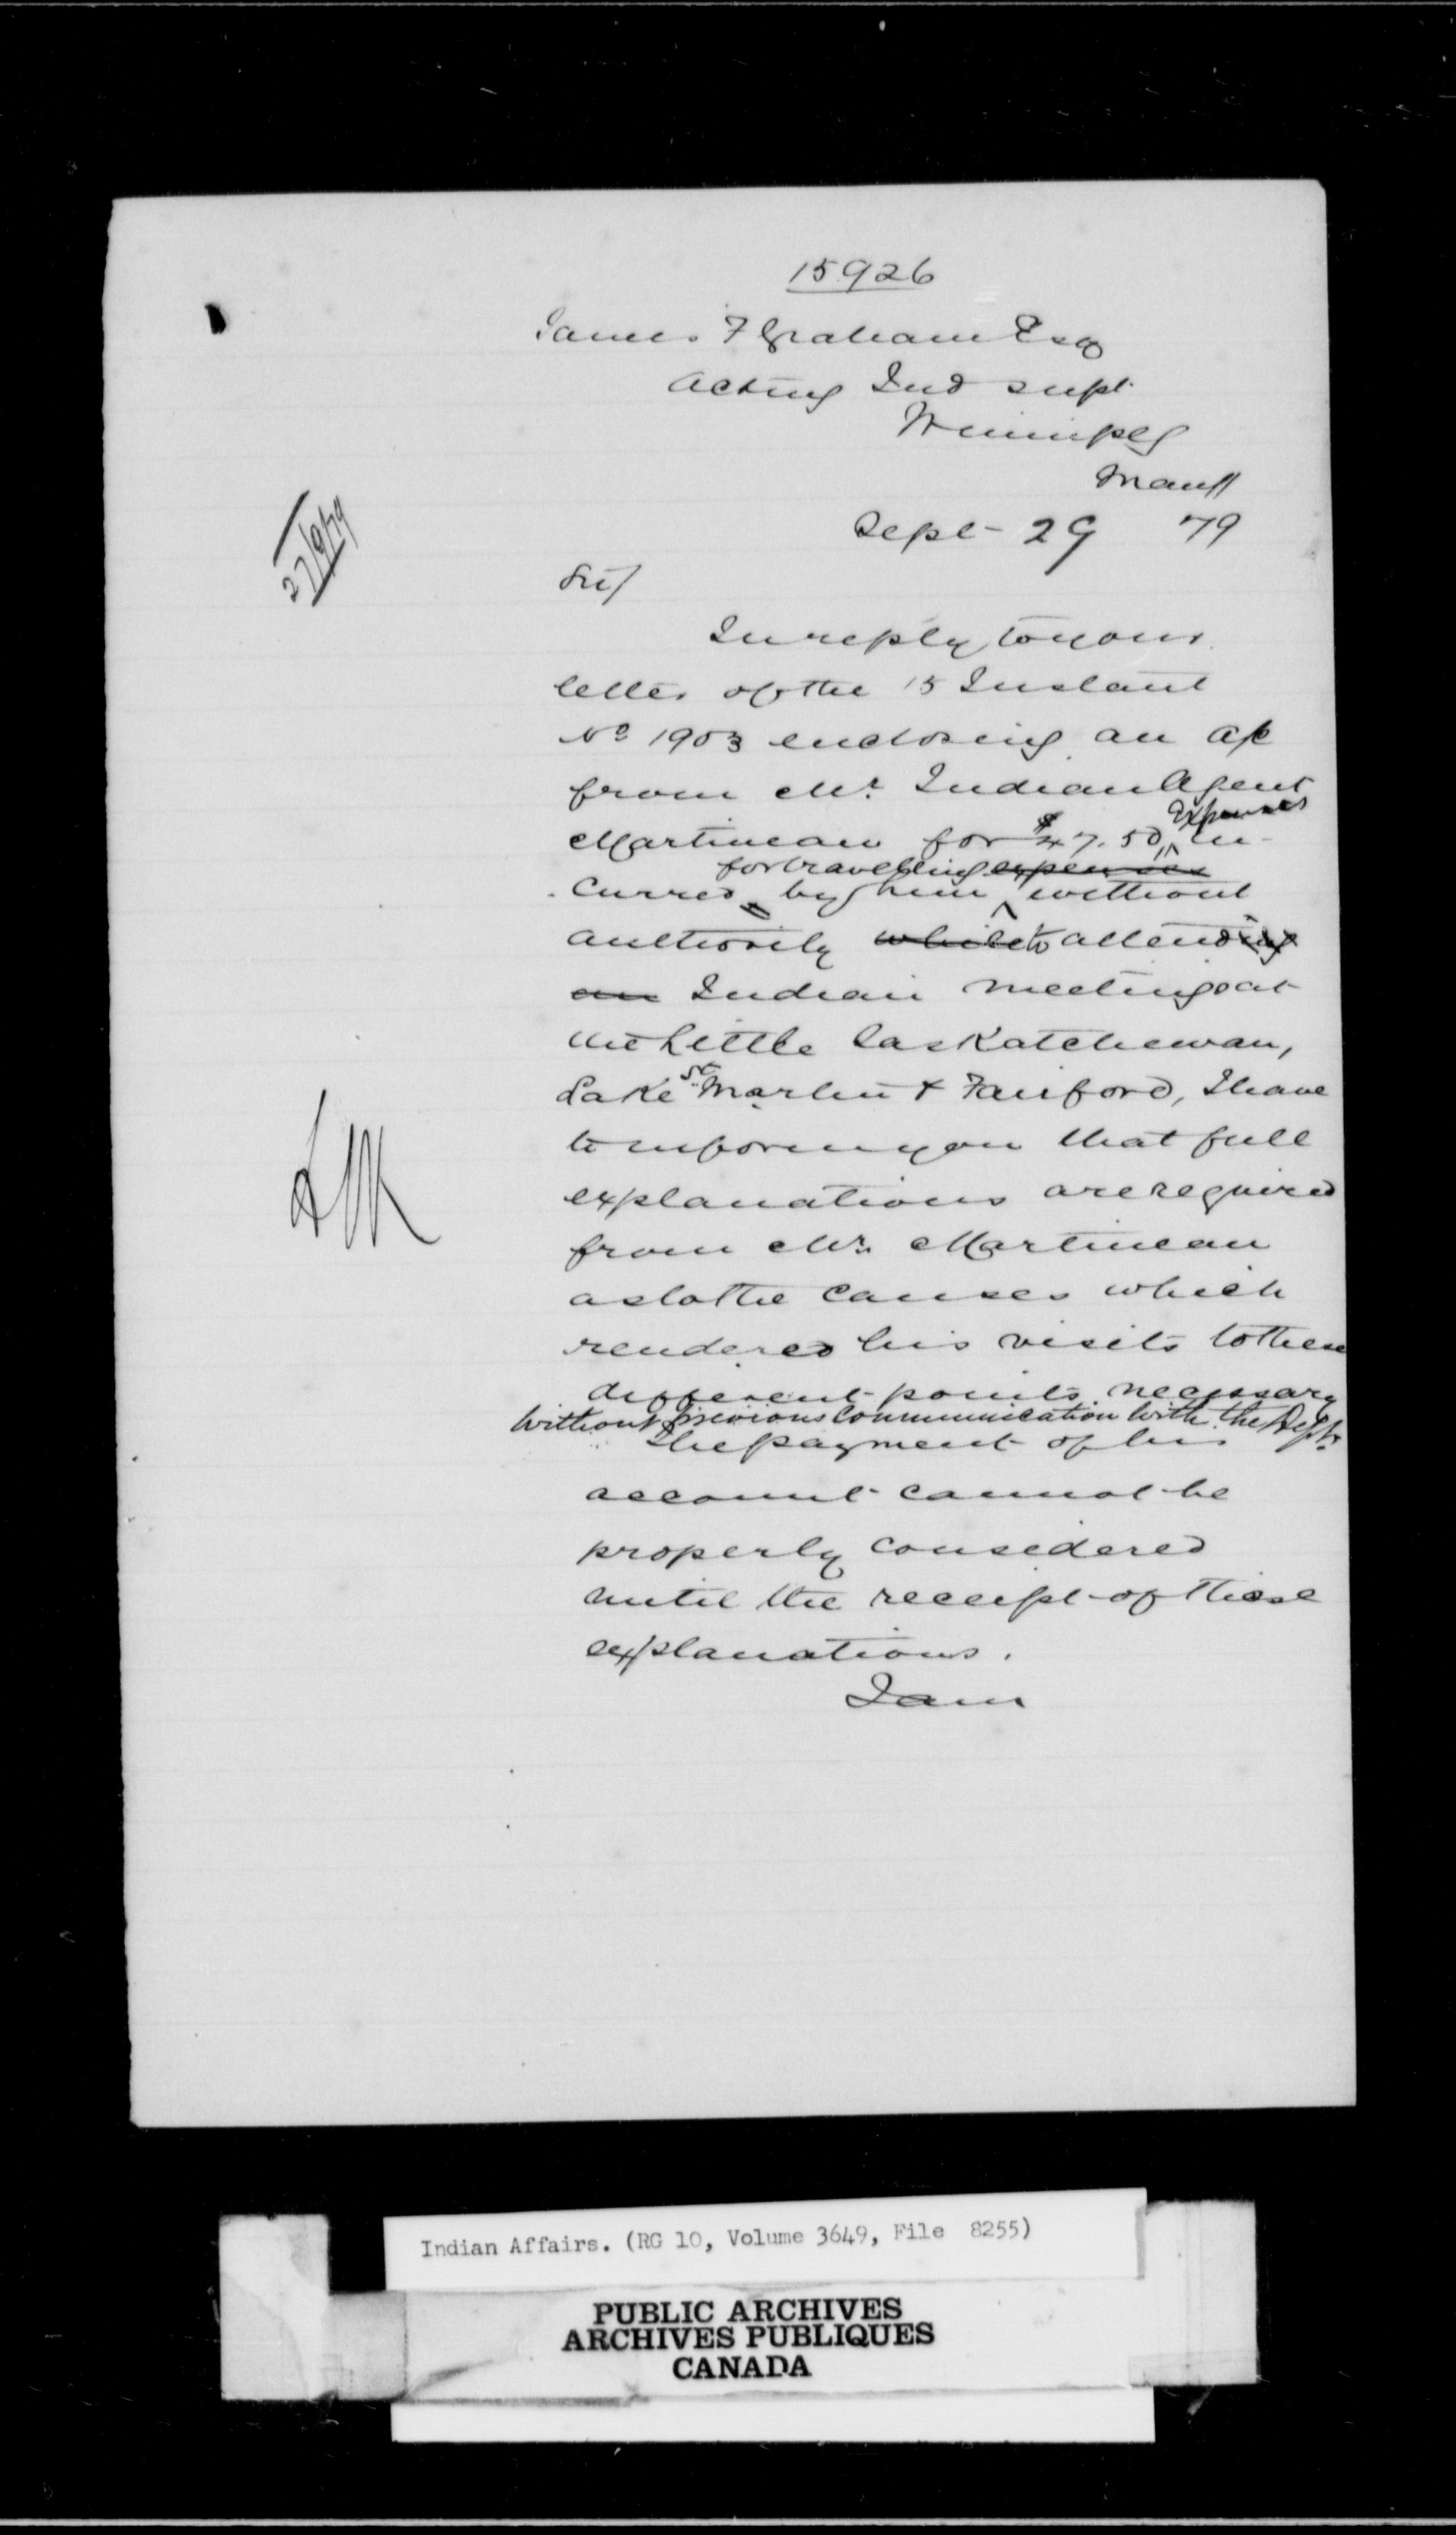 15926
James F Graham Esq
Acting Ind Supt
Winnipeg
Man
Sept - 29 79
27/9/79
Sir/
In reply to your
letter of the 15 Instant
No 1903 enclosing an a/c
from Mr. Indian Agent
Expenses
Martineau for $47.50, in-
for travelling expenses
curred by him without
authority while to attending
an Indian meetings at
the Little Saskatchewan,
Lake St Martin & Fairford, I have
to inform you that full
explanations are required
from Mr. Martineau
as to the causes which
rendered his visits to these
different points necessary
without previous communication with the Dept.
The payment of his
account cannot be
properly considered
until the receipt of these
explanations.
I am
Indian Affairs. (RG 10, Volume 3649, File 8255)
PUBLIC ARCHIVES
ARCHIVES PUBLIQUES
CANADA